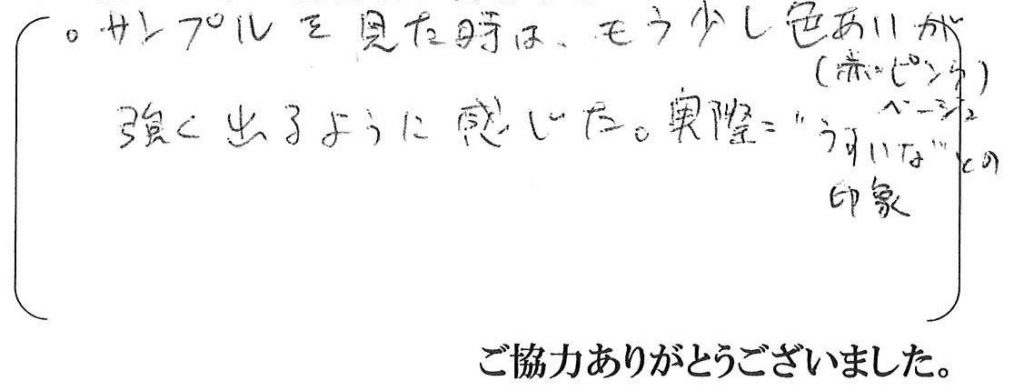 。サンプルを見た時は、もう少し色あいが
(赤・ピンク)
ベージュ
強く出るように感じた。実際=“うすいな”との
印象
ご協力ありがとうございました。